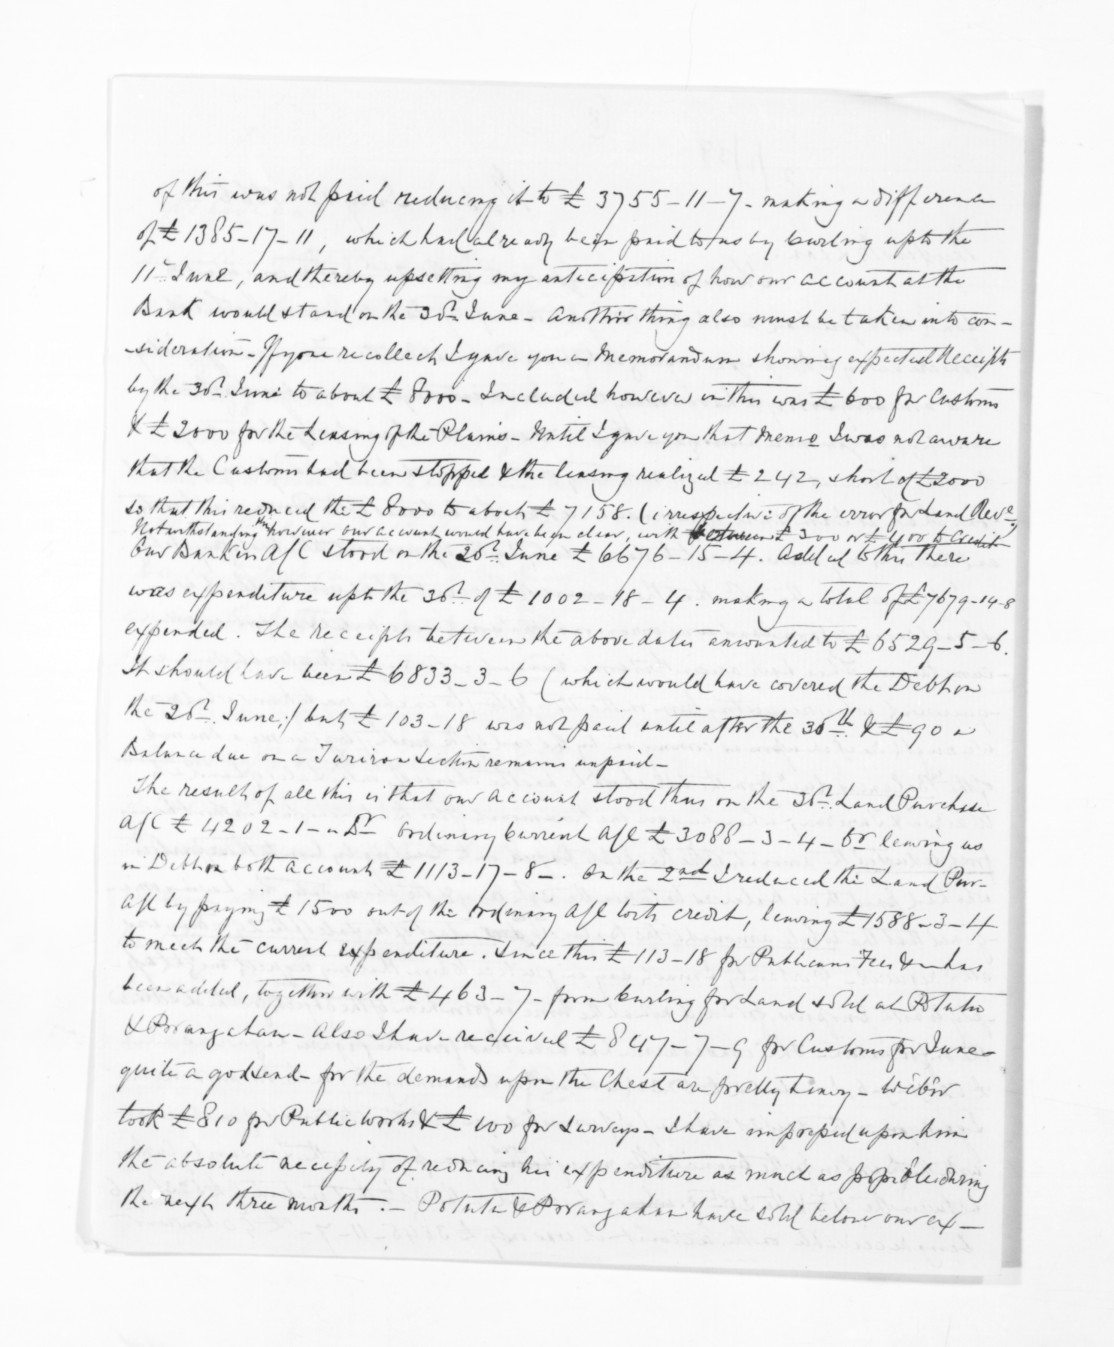 of this was not paid reducing it to £3755-11-7- making a difference
of £1385-17-11, which had already been paid to us by Curling up to the
11th June, and thereby upsetting my anticipation of how our account at the
Bank would stand on the 30th June - Another thing also must be taken into con-
-sideration - If you recollect I gave you a Memorandum showing expected Receipts
by the 30th June to about £8000 - Included however in this was £600 for Customs
& £2000 for the Leasing of the Plains - Until I gave you that Memo I was not aware
that the Customs had been stopped & the leasing realized £242, short of £2000
so that this reduced the £8000 to about £7158. (irrespective of the error for Land Reve)
Notwithstanding this however our account would have been clear, with between £300 or £400 to Credit
Our Bank A/C stood on the 26th June £6676-15-4. Added to this there
was expenditure up to the 30th of £1002-18-4. making a total of £7679-14-8
expended. The receipts between the above dates amounted to £6529-5-6.
It should have been £6833-3-6 (which would have covered the Debt on
the 26th June,) but £103-18 was not paid until after the 30th & £90 a
Balance due on a Section remains unpaid -
The result of all this is that our account stood thus on the 30th Land Purchase
A/C £4202-1-" Dr Ordinary Current A/C £3088-3-4- Cr leaving us
in Debt on both accounts £1113-17-8-. On the 2nd I reduced the Land Pur-
A/C by paying £1500 out of the Ordinary A/C to its credit, leaving £1588-3-4
to meet the current expenditure. Since this £113-18 for Publicans Fees & has
been added, together with £463-7- from Curling for Land sold at Potutu
& Porangahau - Also I have received £847-7-9 for Customs for June -
quite a godsend - for the demands upon the Chest are pretty heavy - Weber
took £810 for Public Works & £100 for Surveys - I have impressed upon him
the absolute necessity of reducing his expenditure as much as possible during
the next three months. - Potutu & Porangahau have sold below our ex-